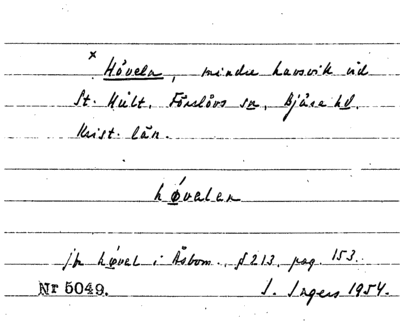 x
Höveln, mindre havsvik vid
St. Hult, Förslövs sn, Bjäre hd.
Krist. län.
høvalen
jfr høvel i Åsbom. § 213. pag. 153.
Nr 5049. I. Ingers 1954.